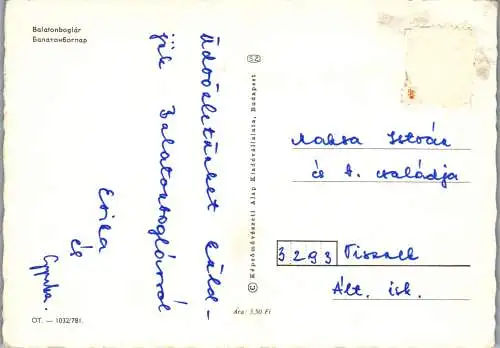 Balatonboglár
Балатонбоглар
Üdvözletünket küld-
jük Balatonboglárról
Erika
és
OT. — 1032/781.
SZ
© Képzőművészeti Alap Kiadóvállalata, Budapest
Ára: 3,50 Ft
Maksa István
és k. családja
3293
Ált. isk.